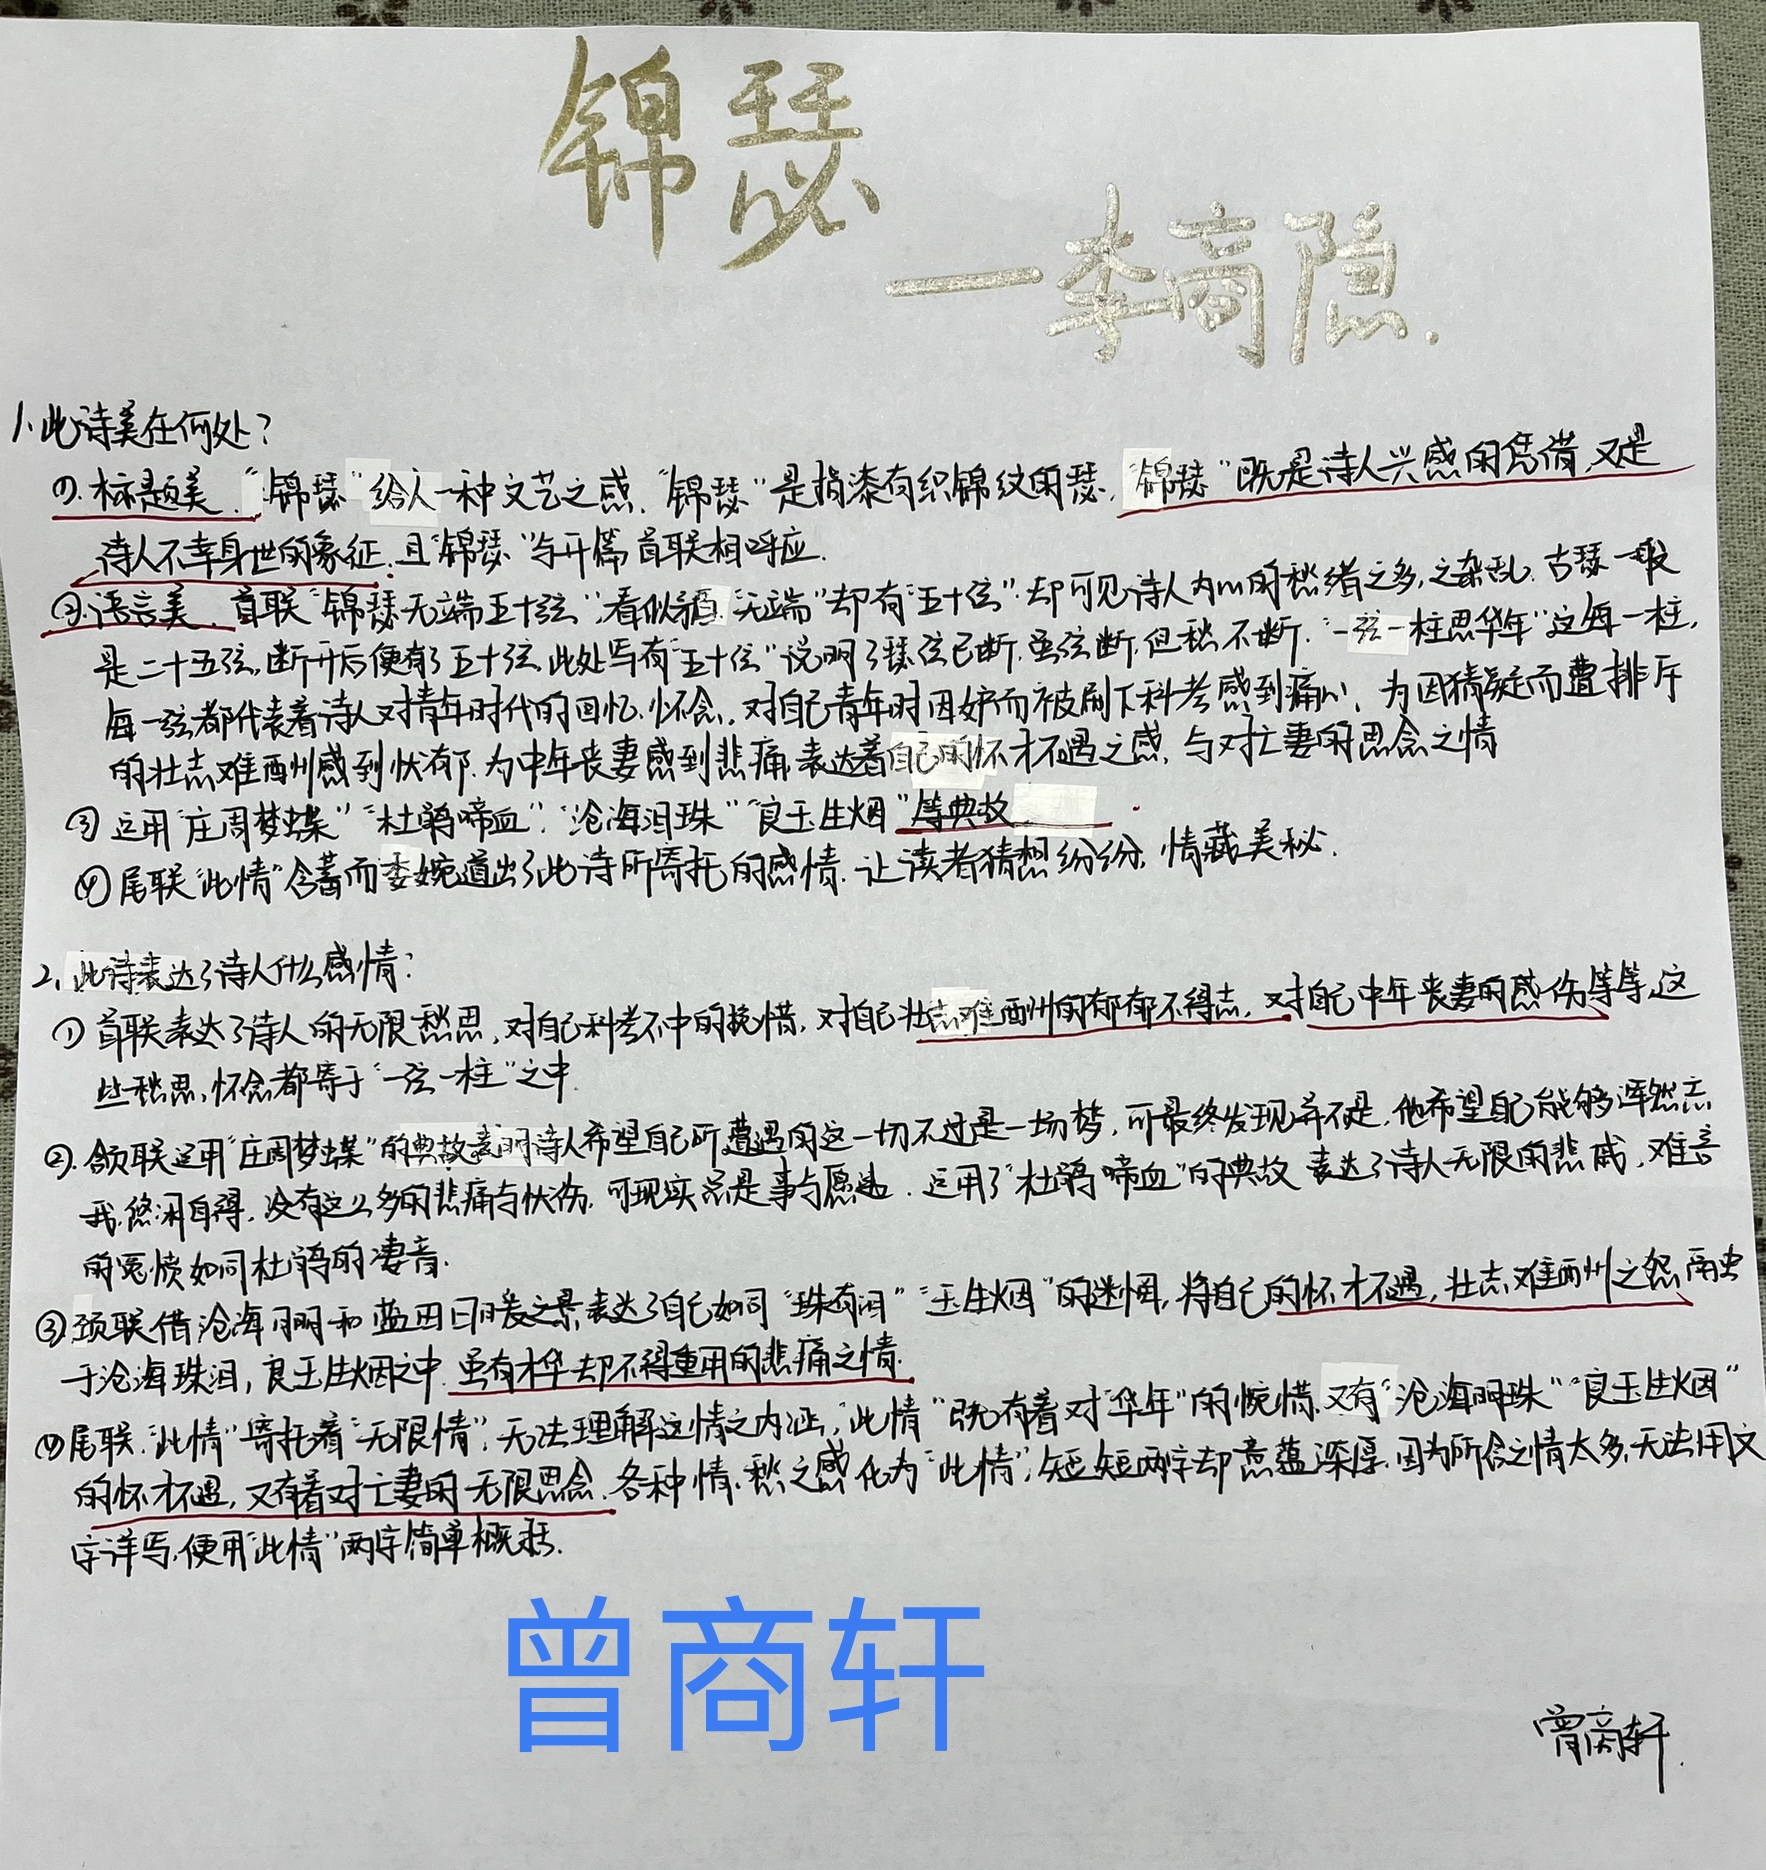 锦瑟
—李商隐.
1、此诗美在何处？
①.标题美."锦瑟"给人一种文艺之感."锦瑟"是指漆有织锦纹的瑟."锦瑟"既是诗人兴感的凭借,又是
诗人不幸身世的象征.且"锦瑟"与开篇首联相呼应.
②.语言美.首联"锦瑟无端五十弦",看似矛盾."无端"却有"五十弦".却可见诗人内心的愁绪之多,之杂乱.古瑟一般
是二十五弦,断开后便有了五十弦.此处写有"五十弦"说明了瑟弦已断.虽弦断,但愁不断."一弦一柱思华年"这每一柱,
每一弦都代表着诗人对青年时代的回忆.怀念.对自己青年时因妒而被刷下科考感到痛心,为因猜疑而遭排斥
的壮志难酬感到忧郁.为中年丧妻感到悲痛.表达着自己的怀才不遇之感,与对亡妻的思念之情
③运用"庄周梦蝶""杜鹃啼血","沧海泪珠""良玉生烟"等典故
④尾联"此情"含蓄而委婉道出了此诗所寄托的感情.让读者猜想纷纷,情藏美秘.
2、此诗表达了诗人什么感情：
①首联表达了诗人的无限愁思,对自己科考不中的惋惜,对自己壮志难酬的郁郁不得志,对自己中年丧妻的感伤等等,这
些愁思,怀念都寄于"一弦一柱"之中.
②.颔联运用"庄周梦蝶"的典故表明诗人希望自己所遭遇的这一切不过是一场梦,可最终发现并不是,他希望自己能够浑然忘
我.悠闲自得,没有这么多的悲痛与忧伤,可现实总是事与愿违.运用了"杜鹃啼血"的典故表达了诗人无限的悲戚,难言
的冤愤如同杜鹃的凄音.
③.颈联借沧海月明和蓝田日暖之景表达了自己如同"珠有泪""玉生烟"的迷惘,将自己的怀才不遇,壮志难酬之怨融
于沧海珠泪,良玉生烟之中.虽有才华却不得重用的悲痛之情.
④尾联."此情"寄托着"无限情",无法理解这情之内涵,"此情"既有着对"华年"的惋惜.又有"沧海明珠""良玉生烟"
的怀才不遇,又有着对亡妻的无限思念.各种情.愁之感化为"此情",短短两字却意蕴深厚.因为所含之情太多,无法用文
字详写,便用"此情"两字简单概括.
曾商轩
曾商轩.